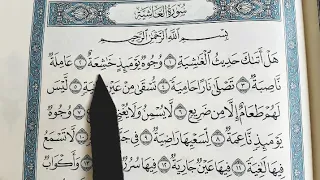 سُورَةُ الْغَاشِيَةِ
بِسْمِ اللَّهِ الرَّحْمَٰنِ الرَّحِيمِ
هَلْ أَتَىٰكَ حَدِيثُ الْغَٰشِيَةِ ١ وُجُوهٌ يَوْمَئِذٍ خَٰشِعَةٌ ٢ عَامِلَةٌ
نَّاصِبَةٌ ٣ تَصْلَىٰ نَارًا حَامِيَةً ٤ تُسْقَىٰ مِنْ عَيْنٍ ٥ لَّيْسَ
لَهُمْ طَعَامٌ إِلَّا مِن ضَرِيعٍ ٦ لَّا يُسْمِنُ وَلَا يُغْنِي ٧ وُجُوهٌ
يَوْمَئِذٍ نَّاعِمَةٌ ٨ لِّسَعْيِهَا رَاضِيَةٌ ٩ فِي جَنَّةٍ عَالِيَةٍ ١٠ لَّا تَسْمَعُ
فِيهَا لَٰغِيَةً ١١ فِيهَا عَيْنٌ جَارِيَةٌ ١٢ فِيهَا سُرُرٌ وَأَكْوَابٌ